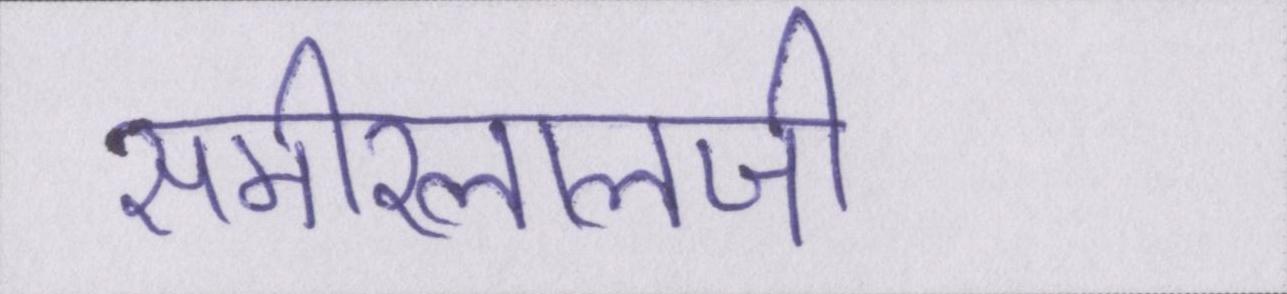 समीरलालजी